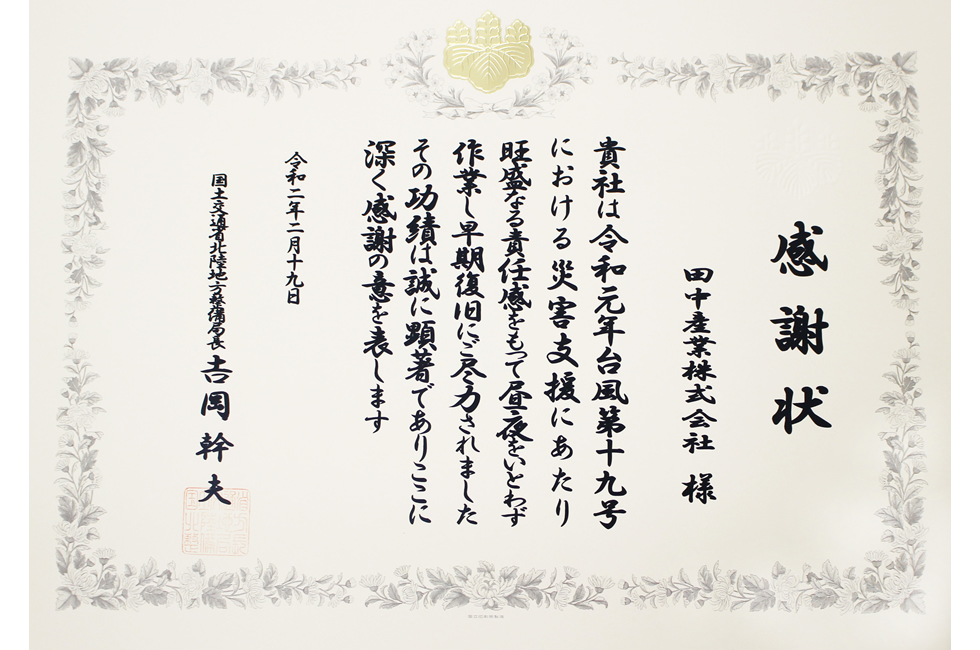 感謝状
田中産業株式会社 様
貴社は令和元年台風第十九号
における災害支援にあたり
旺盛なる責任感をもって昼夜をいとわず
作業し早期復旧にご尽力されました
その功績は誠に顕著でありここに
深く感謝の意を表します
令和二年二月十九日
国土交通省北陸地方整備局長 吉岡幹夫